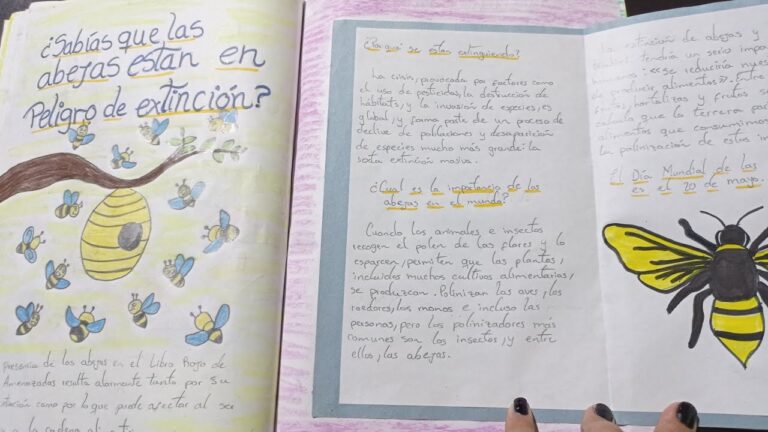 ¿Sabías que las
abejas están en
Peligro de extinción?
presencia de las abejas en el Libro Rojo de
Amenazadas resulta alarmante tanto por su
como por lo que puede afectar al ser
a la cadena
¿Por qué se están extinguiendo?
La crisis, provocada por factores como
el uso de pesticidas, la destrucción de
hábitats, y la invasión de especies, es
global, y forma parte de un proceso de
declive de poblaciones y desaparición
de especies mucho más grande: la
sexta extinción masiva.
¿Cual es la importancia de las
abejas en el mundo?
Cuando los animales e insectos
recogen el polen de las flores y lo
esparcen, permiten que las plantas,
incluidos muchos cultivos alimentarios,
se produzcan. Polinizan las aves, los
roedores, los monos e incluso las
personas, pero los polinizadores más
comunes son los insectos, y entre
ellos, las abejas.
La extinción de abejas y
tendría un serio impa
humanos: «se reduciría nues
producir alimentos». Entre
frutas, hortalizas y frutos se
que la tercera par
alimentos que consumimos
la polinización de estos in
El Día Mundial de las
es el 20 de mayo.